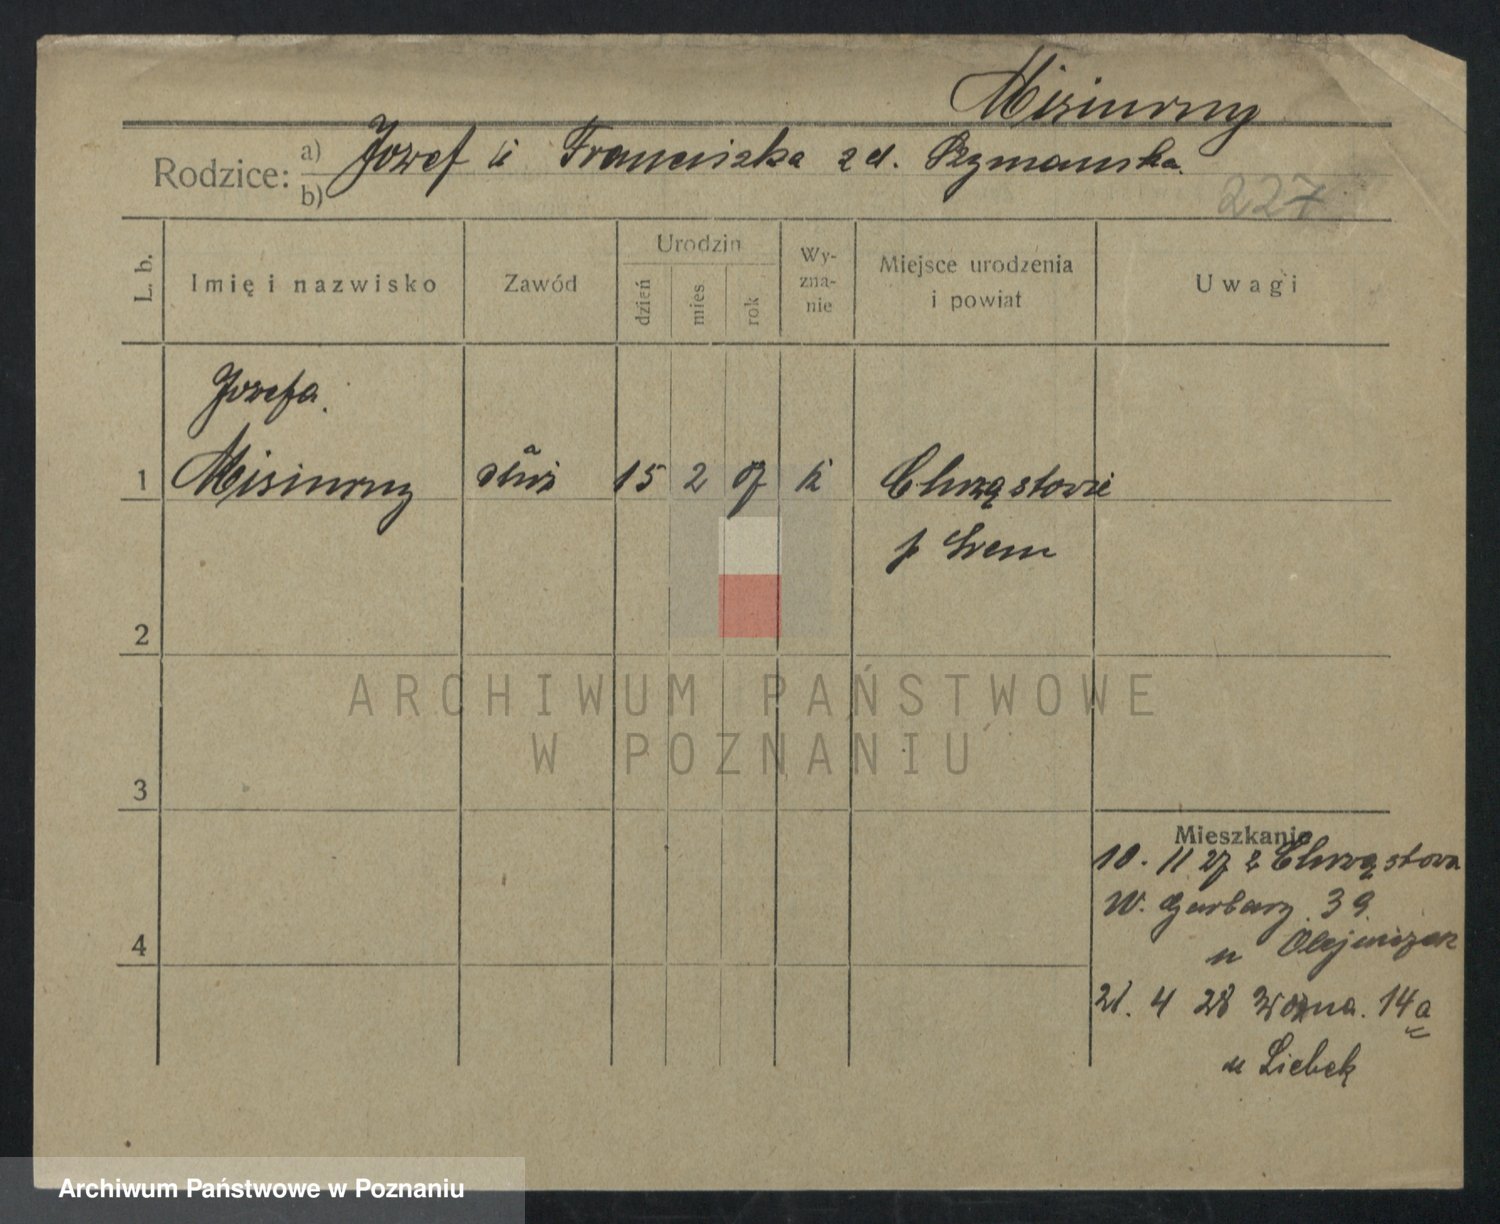 Misiurny
Rodzice: a) Jozef i Franciszka z d. Szymanska
b)
227
L. b.
Imię i nazwisko
Zawód
Urodzin
dzień
mies.
rok
Wy-
zna-
nie
Miejsce urodzenia
i powiat
Uwagi
Jozefa
1 Misiurny służ 15 2 07 k Chrząstowie
p Srem
2
ARCHIWUM PAŃSTWOWE
W POZNANIU
3
Mieszkanie
10. 11 27 z Chrząstowa
W. Garbary 39
4
u Olejniczak
21. 4 28 Wozna. 14a
u Liebek
Archiwum Państwowe w Poznaniu